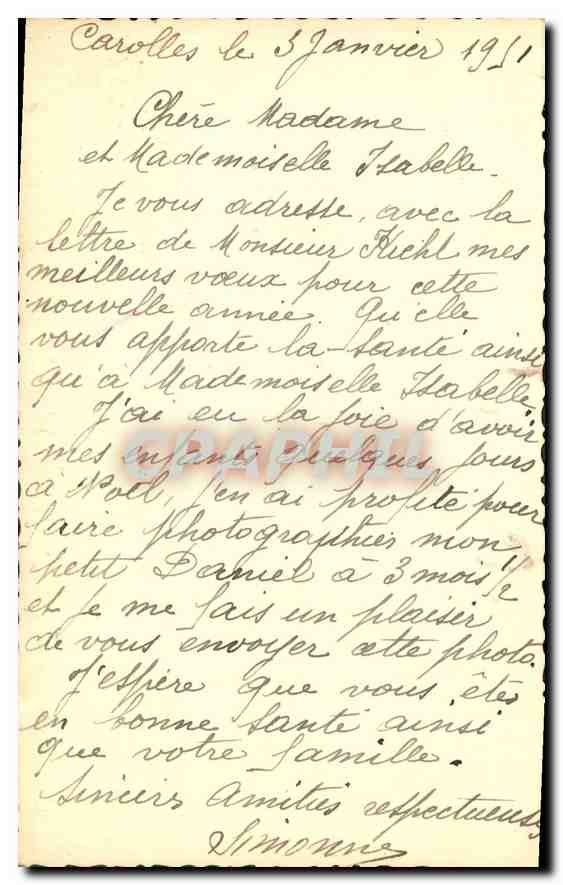 Carolles le 3 Janvier 1951
Chère Madame
et Mademoiselle Isabelle.
Je vous adresse, avec la
lettre de Monsieur mes
meilleurs vœux pour cette
nouvelle année. Qu'elle
vous apporte la santé ainsi
qu'à Mademoiselle Isabelle
J'ai eu la joie d'avoir
mes enfants quelques jours
à Noël, j'en ai profité pour
faire photographier mon
petit Daniel à 3 mois 1/2
et je me fais un plaisir
de vous envoyer cette photo.
J'espère que vous êtes
en bonne santé ainsi
que votre famille.
Sincères Amitiés respectueuses
Simonne